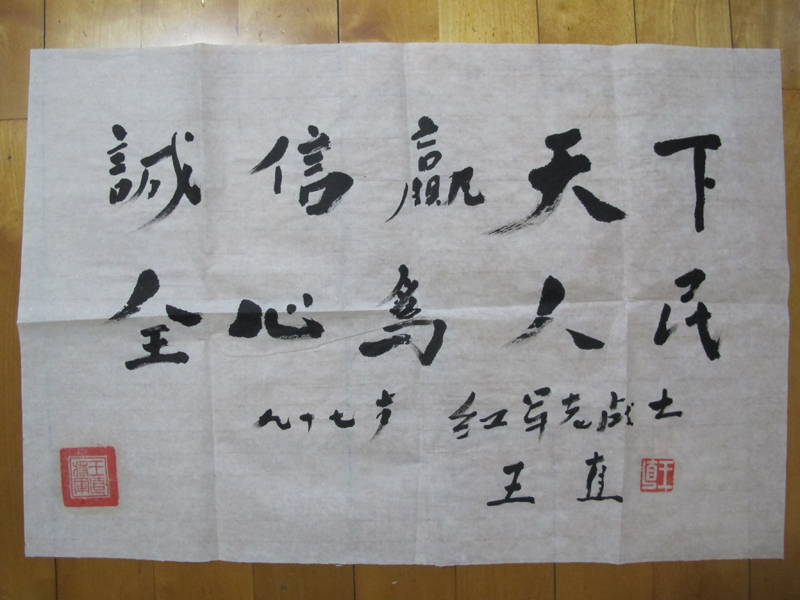 誠信贏天下
全心為人民
九十七岁 红军老战士
王直
王直